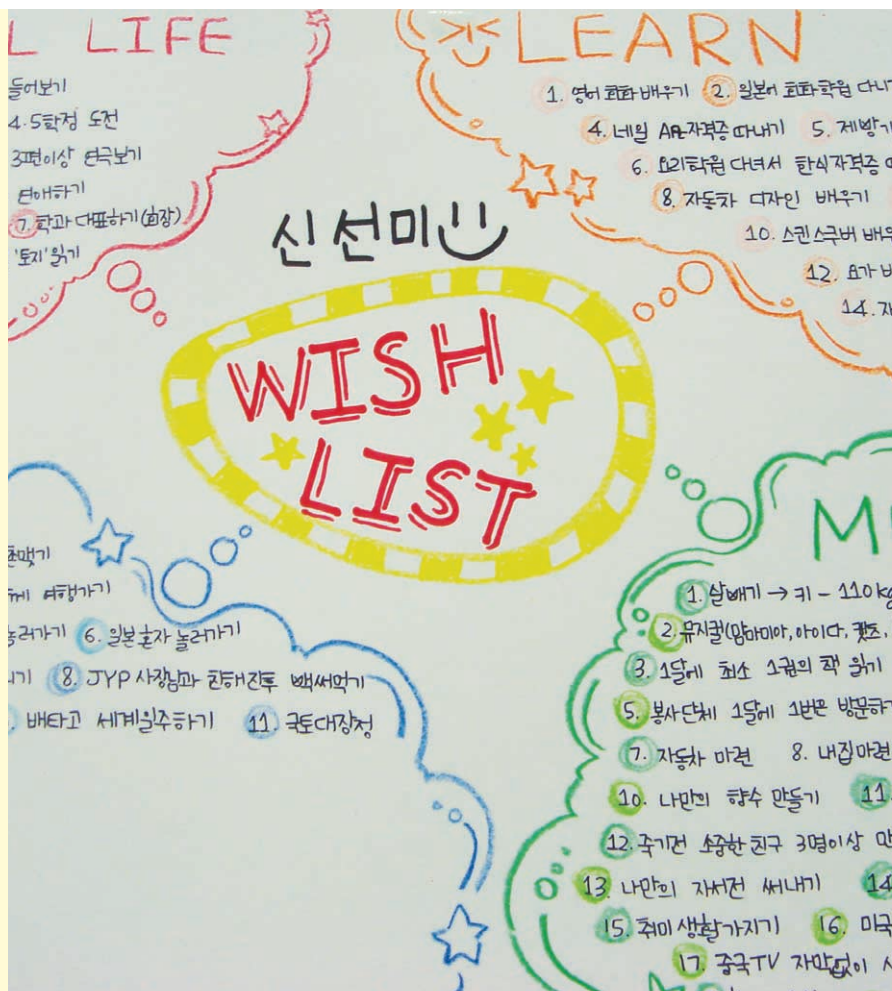 L LIFE
들어보기
4.5학점 도전
3편이상 연극보기
연애하기
7. 학과 대표하기(회장)
'토지' 읽기
LEARN
1. 영어 회화 배우기 2. 일본어 회화학원 다니
4. 네일 Art 자격증 따내기 5. 제빵기
6. 요리학원 다녀서 한식자격증
8. 자동차 디자인 배우기
10. 스킨스쿠버 배우
12. 요가 배
14.
신선미
WISH
LIST
맺기
여행가기
놀러가기 6. 일본 혼자 놀러가기
기 8. JYP 사장님과 친해진후 빽써먹기
배타고 세계일주하기 11. 국토대장정
M
1. 살빼기 → 키 - 110kg
2. 뮤지컬(맘마미아, 아이다, 캣츠,
3. 1달에 최소 1권의 책 읽기
5. 봉사단체 1달에 1번은 방문하기
7. 자동차 마련 8. 내집마련
10. 나만의 향수 만들기 11.
12. 죽기전 소중한 친구 3명이상 만
13. 나만의 자서전 써내기 14
15. 취미생활가지기 16. 미국
17. 중국TV 자막없이